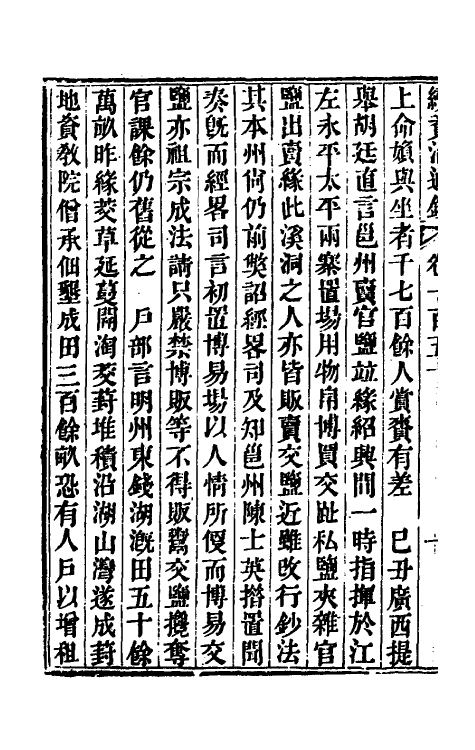 續資治通鑑 卷一百五十 十
上命頒與坐者千七百餘人賞賚有差 己丑廣西提
舉胡廷直言邕州賣官鹽竝緣紹興間一時指揮於江
左永平太平兩寨置場用物帛博買交趾私鹽夾雜官
鹽出賣緣此溪洞之人亦皆販賣交鹽近雖改行鈔法
其本州尚仍前弊詔經畧司及知邕州陳士英措置聞
奏旣而經畧司言初置博易場以人情所便而博易交
鹽亦祖宗成法請只嚴禁博販等不得販鬻交鹽攙奪
官課餘仍舊從之 戶部言明州東錢湖漑田五十餘
萬畝昨緣茭草延蔓開淘茭葑堆積沿湖山灣遂成葑
地資敎院僧承佃墾成田三百餘畝恐有人戶以增租